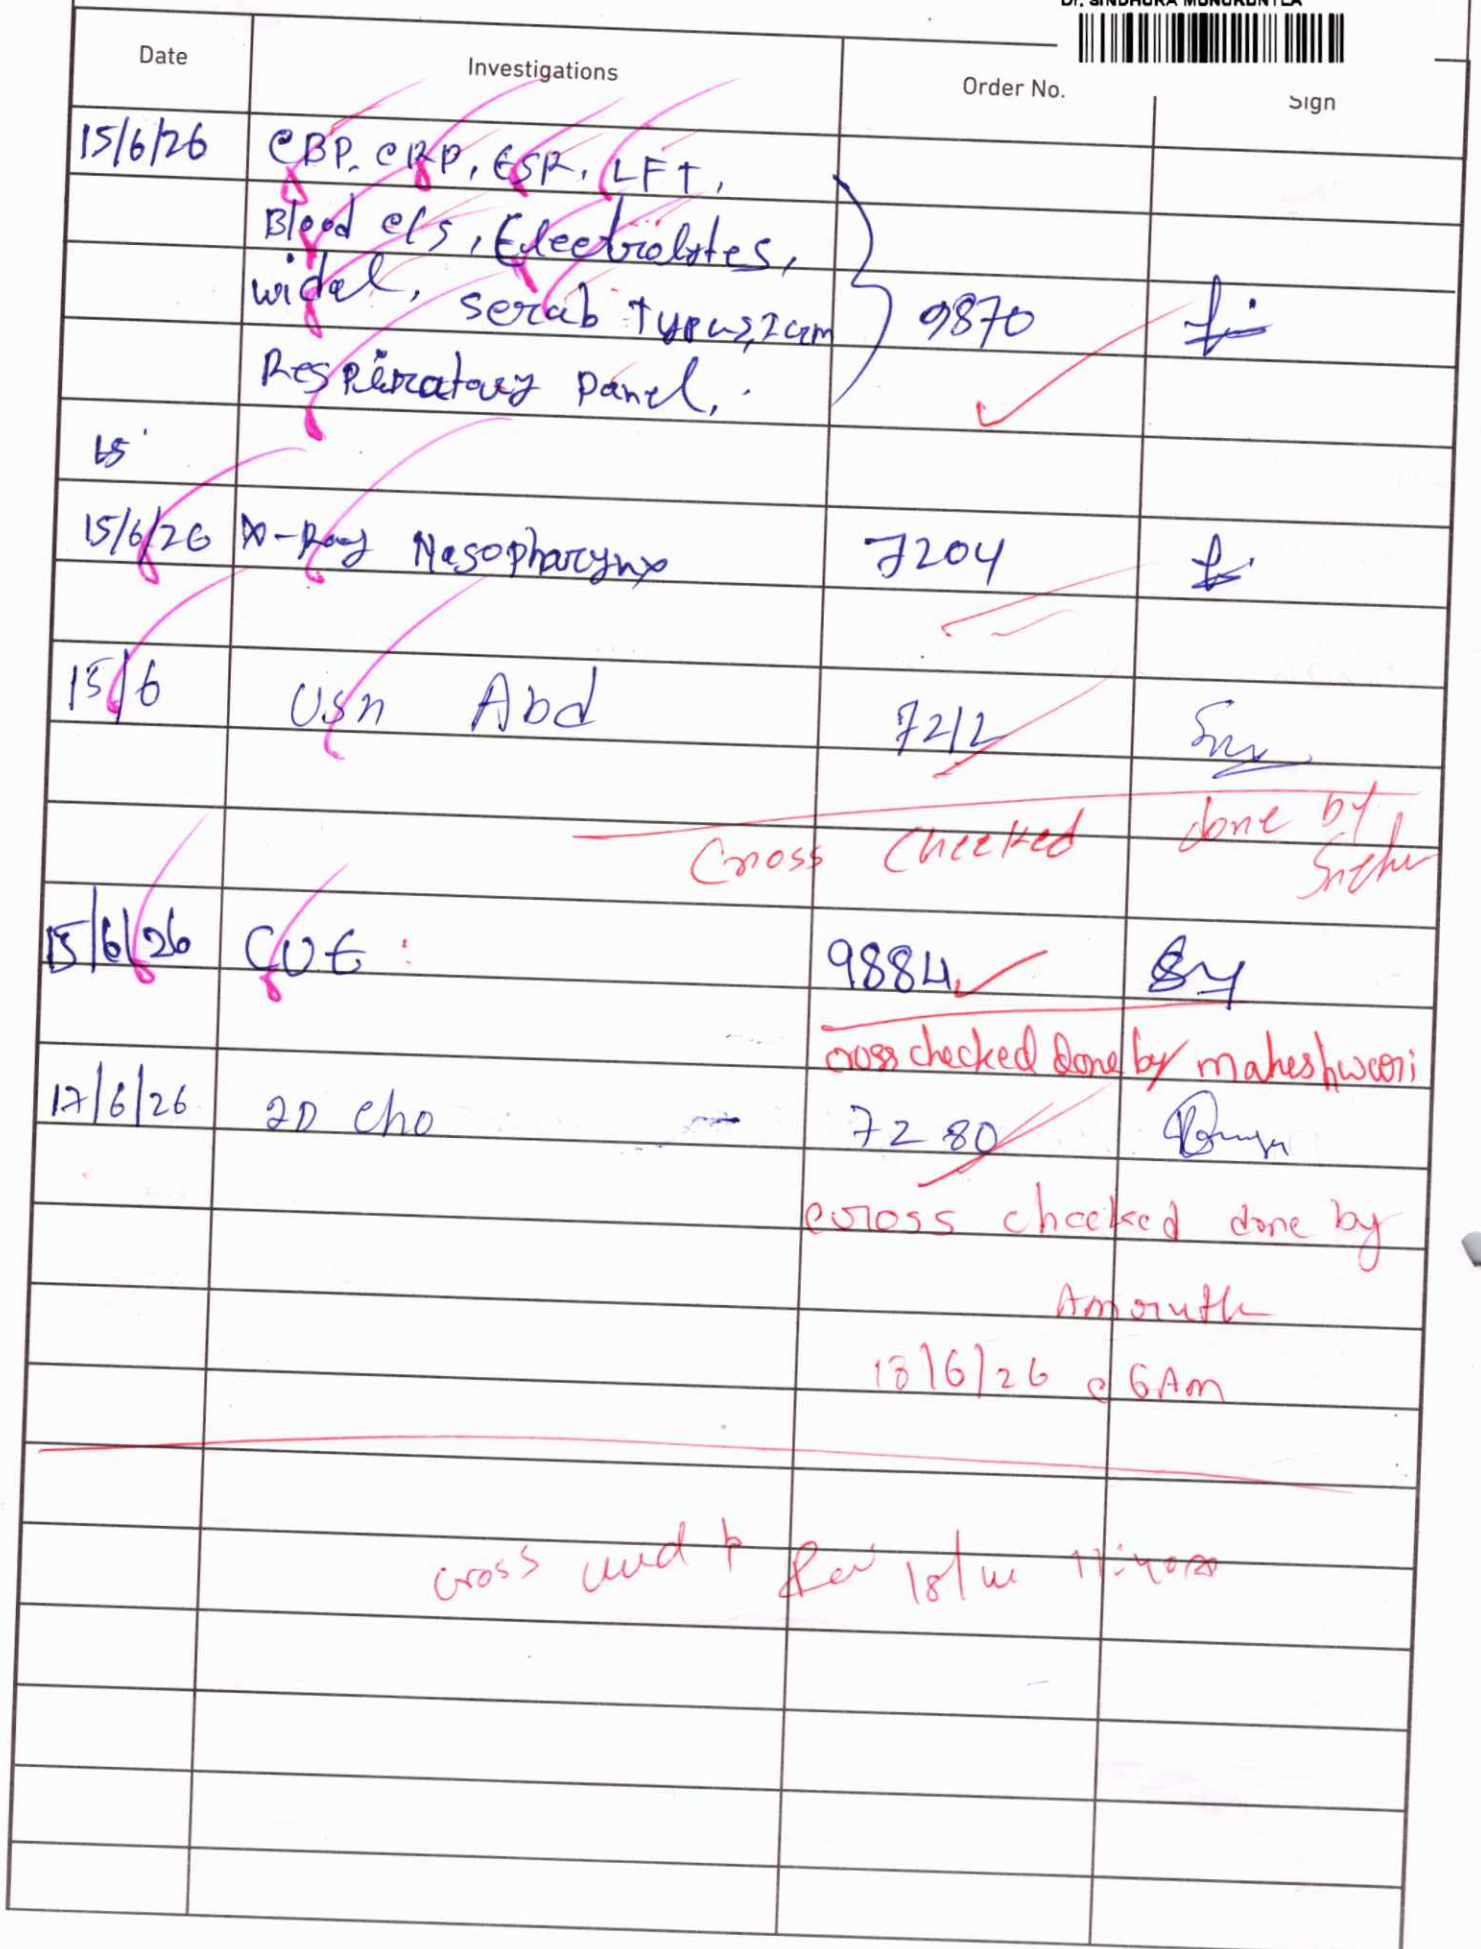 Dr. SINDHURA MUNUKUNTLA
Date Investigations Order No. Sign
15/6/26 CBP, CRP, ESR, LFT,
Blood c/s, Electrolytes,
widal, serab typus, IgM 9870
Respiratory panel,
15
15/6/26 X-Ray Nasopharynx 7204
15/6 USG Abd 7212
Cross Checked done by
15/6/26 CUE : 9884
cross checked done by maheshwari
17/6/26 2D Cho 7280
cross checked done by
Amruth
18/6/26 @ 6 Am
cross